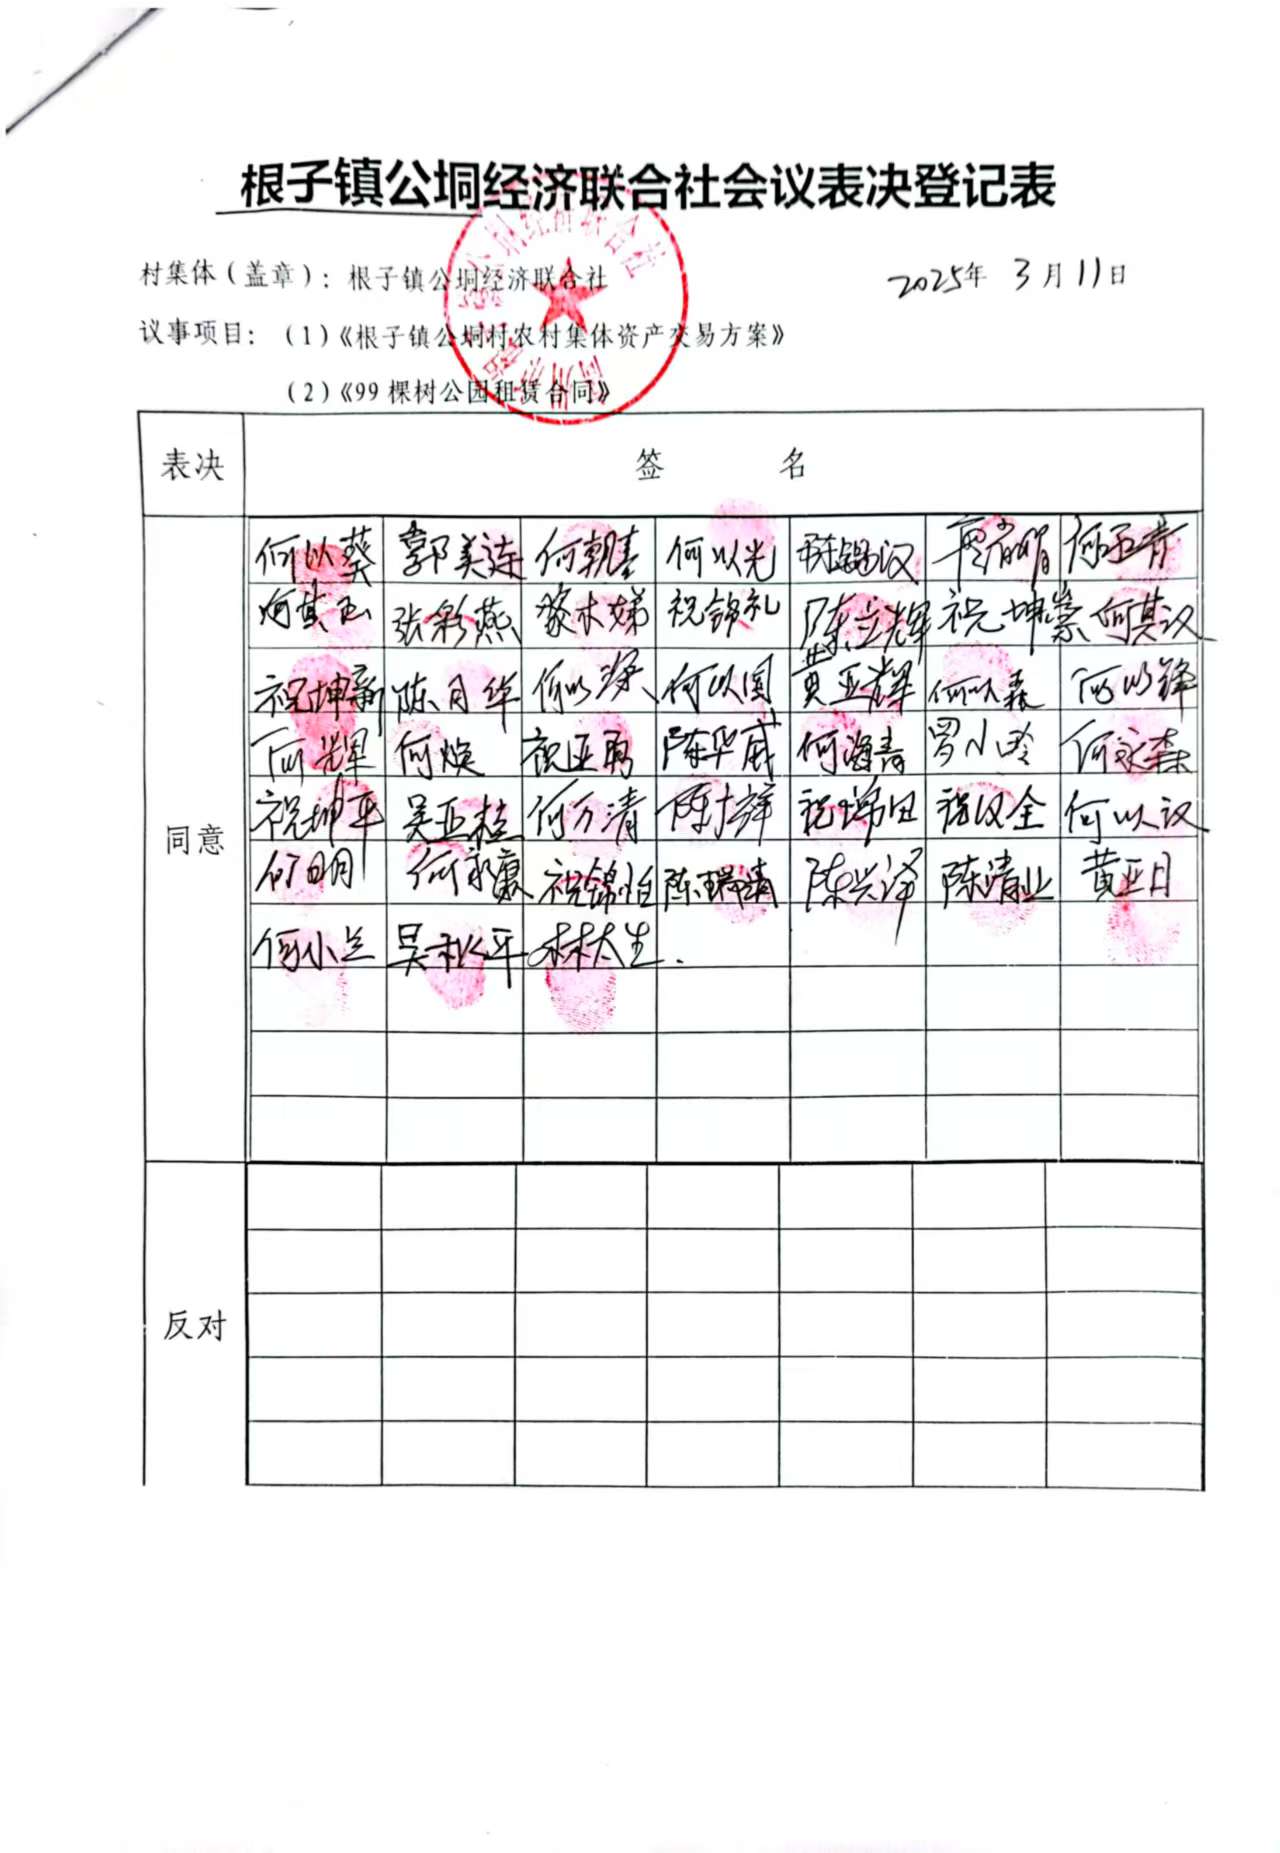 根子镇公垌经济联合社会议表决登记表
村集体（盖章）：根子镇公垌经济联合社 2025年 3月11日
议事项目：（1）《根子镇公垌村农村集体资产交易方案》
（2）《99棵树公园租赁合同》
表决 签 名
何以葵 郭美连 何朝春 何以光 陈锡汉
何其玉 张彩燕 黎木娣 祝锦礼 陈立辉 祝坤崇 何其议
祝坤新 陈月华 何以深 何以国 黄亚辉 何以森 何以锋
何辉 何焕 祝亚勇 陈华威 何海青 罗小玲 何永森
同意
祝坤平 吴亚桂 何万清 祝瑞田 祝汉全 何以议
何日明 何永康 祝锦恒 陈瑞清 陈兴泽 陈清业 黄亚日
何小兰 吴松平 林太生.
反对